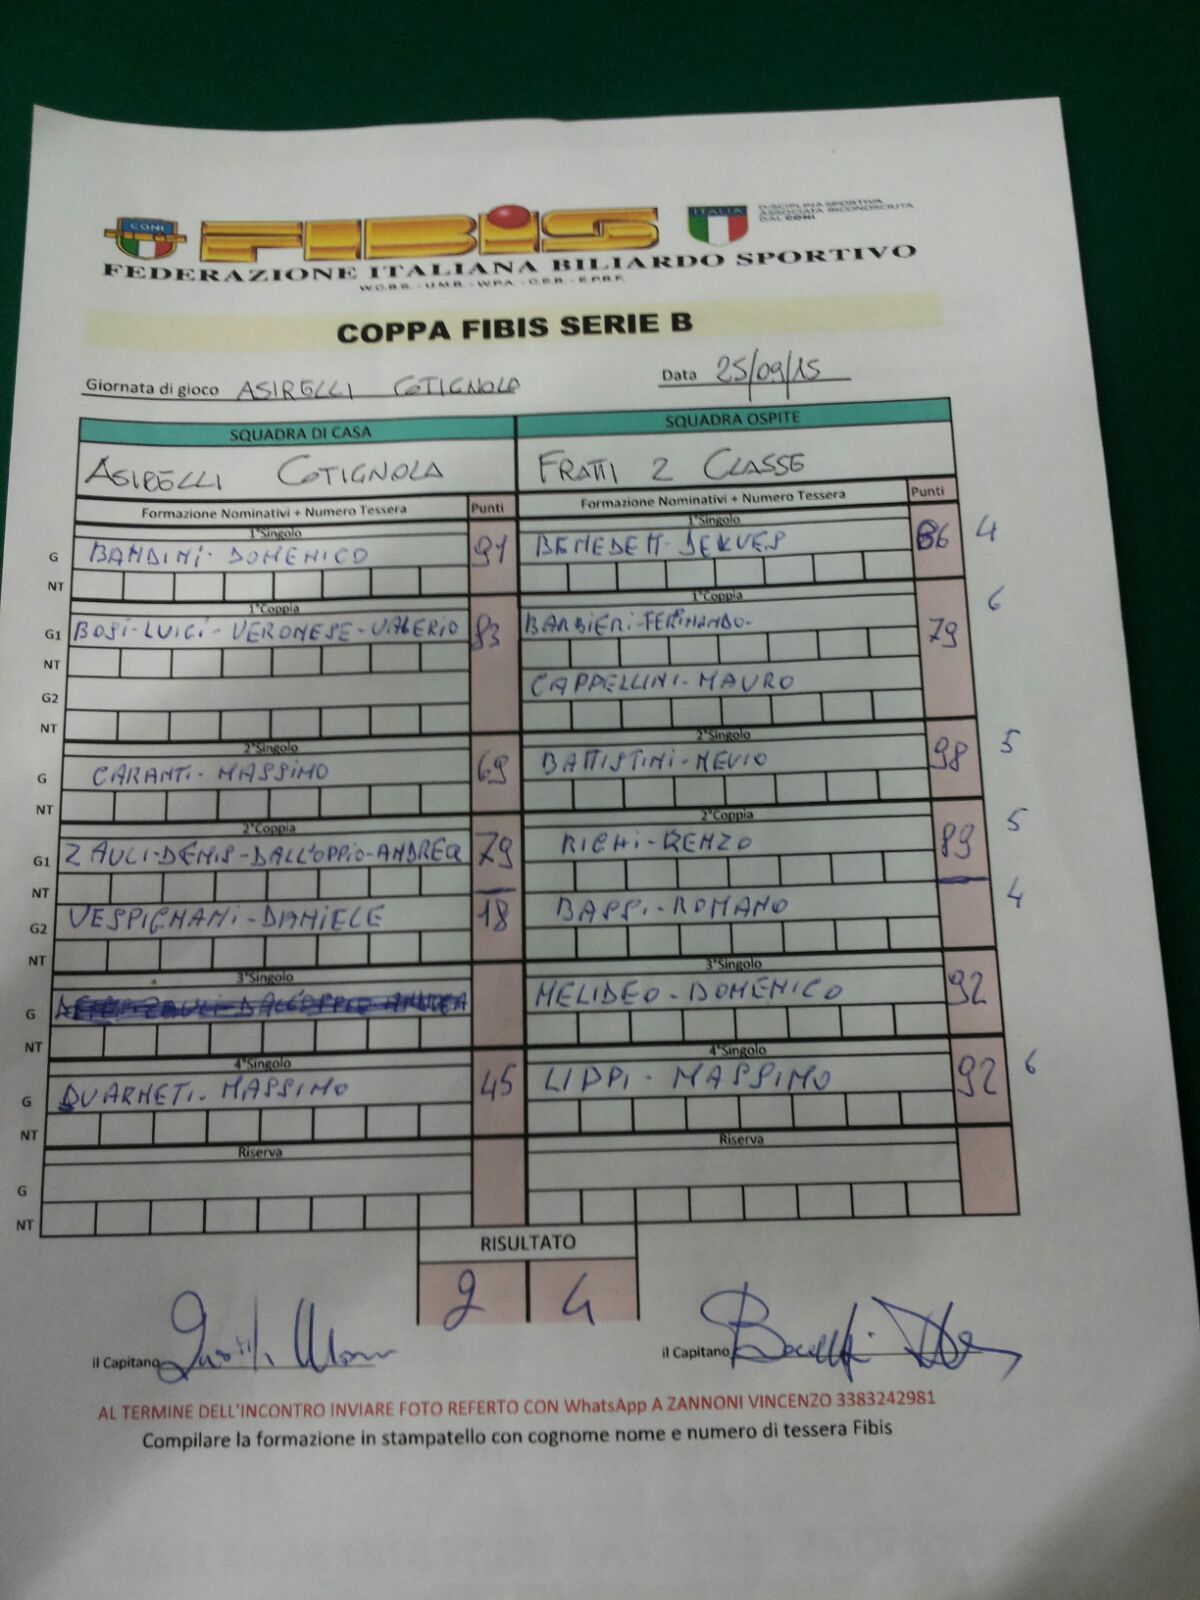 CONI
FIBiS
ITALIA
DISCIPLINA SPORTIVA
ASSOCIATA RICONOSCIUTA
DAL CONI
FEDERAZIONE ITALIANA BILIARDO SPORTIVO
W.C.B.S. - U.M.B. - W.P.A. - C.E.B. - E.P.B.F.
COPPA FIBIS SERIE B
Giornata di gioco ASIRELLI COTIGNOLA Data 25/09/15
SQUADRA DI CASA SQUADRA OSPITE
ASIRELLI COTIGNOLA FRATTI 2 CLASSE
Formazione Nominativi + Numero Tessera Punti Formazione Nominativi + Numero Tessera Punti
1°Singolo 1°Singolo
G BANDINI - DOMENICO 91 86 4
NT
1°Coppia 1°Coppia
G1 BOSI - LUIGI - VERONESE - VALERIO 83 BARBIERI - FERINANDO - 79 6
NT
G2 CAPPELLINI - MAURO
NT
2°Singolo 2°Singolo
G CARANTI - MASSIMO 69 BATTISTINI - NEVIO 98 5
NT
2°Coppia 2°Coppia
G1 ZAULI - DENIS - DALL'OPPIO - ANDREA 79 RIGHI - RENZO 89 5
NT
G2 VESPIGNANI - DANIELE 18 BASSI - ROMANO 4
NT
3°Singolo 3°Singolo
G MELIDEO - DOMENICO 92
NT
4°Singolo 4°Singolo
G QUARNETI - MASSIMO 45 LIPPI - MASSIMO 92 6
NT
Riserva Riserva
G
NT
RISULTATO
2 4
il Capitano il Capitano
AL TERMINE DELL'INCONTRO INVIARE FOTO REFERTO CON WhatsApp A ZANNONI VINCENZO 3383242981
Compilare la formazione in stampatello con cognome nome e numero di tessera Fibis